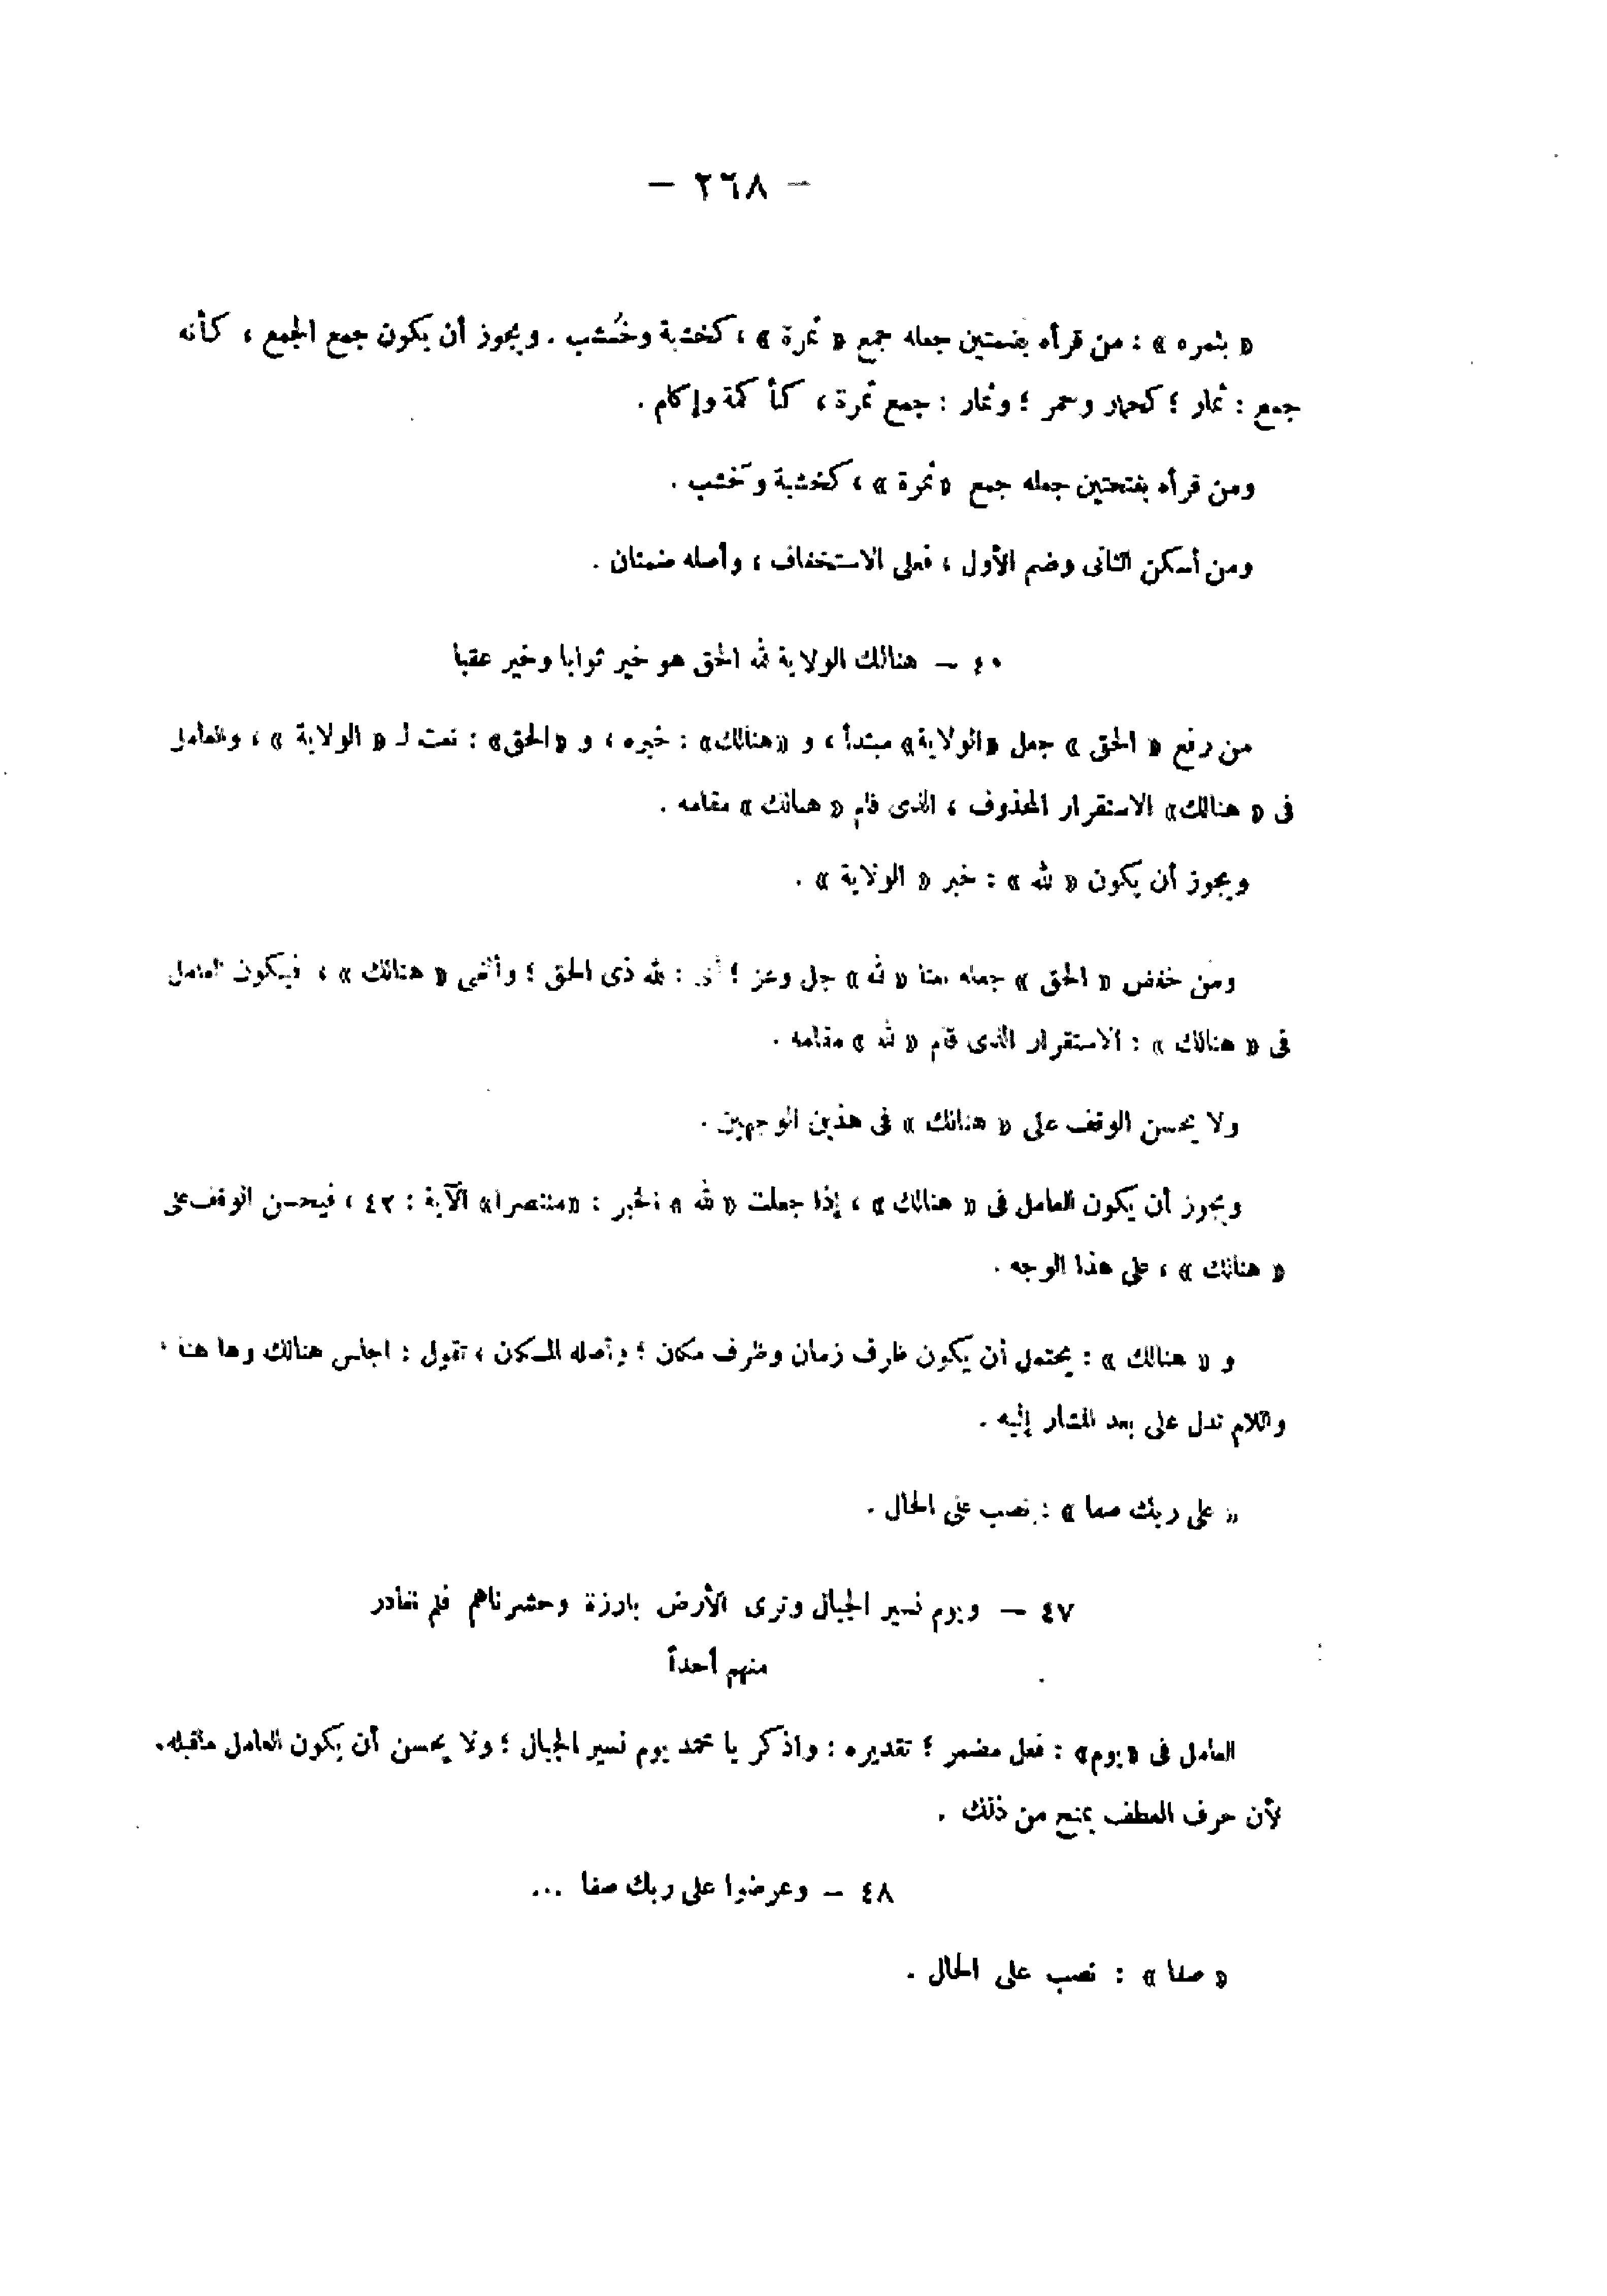 — ٢٦٨ —
« بثمره » : من قرأه بضمتين جعله جمع « ثمرة » ، كخشبة وخُشب . ويجوز أن يكون جمع الجمع ، كأنه
جمع : ثمار ؛ كحمار وحمر ؛ وثمار : جمع ثمرة ، كأكمة وإكام .
ومن قرأه بفتحتين جعله جمع « ثمرة » ، كخشبة وخَشب .
ومن أسكن الثانى وضم الأول ، فعلى الاستخفاف ، وأصله ضمتان .
٤٠ — هنالك الولاية لله الحق هو خير ثوابا وخير عقبا
من رفع « الحق » جعل «الولاية» مبتدأ ، و «هنالك» : خبره ، و «الحق» : نعت لـ « الولاية » ، والعامل
فى « هنالك» الاستقرار المحذوف ، الذى قام « هنالك » مقامه .
ويجوز أن يكون « لله » : خبر « الولاية » .
ومن خفض « الحق » جعله نعتا « لله » جل وعز ؛ أى : لله ذى الحق ؛ وألغى « هنالك » ، فيكون العامل
فى « هنالك » : الاستقرار الذى قام « لله » مقامه .
ولا يحسن الوقف على « هنالك » فى هذين الوجهين .
ويجوز أن يكون العامل فى « هنالك » ، إذا جعلت « لله » الخبر : «منتصرا» الآية : ٤٣ ، فيحسن الوقف على
« هنالك » ، على هذا الوجه .
و « هنالك » : يحتمل أن يكون ظرف زمان وظرف مكان ؛ وأصله المكان ، تقول : اجلس هنالك وها هنا ،
واللام تدل على بعد المشار إليه .
« على ربك صفا » : نصب على الحال .
٤٧ — ويوم نسير الجبال وترى الأرض بارزة وحشرناهم فلم نغادر
منهم أحداً
العامل فى «يوم» : فعل مضمر ؛ تقديره : واذكر يا محمد يوم نسير الجبال ؛ ولا يحسن أن يكون العامل ماقبله،
لأن حرف العطف يمنع من ذلك .
٤٨ — وعرضوا على ربك صفا ...
« صفا » : نصب على الحال .